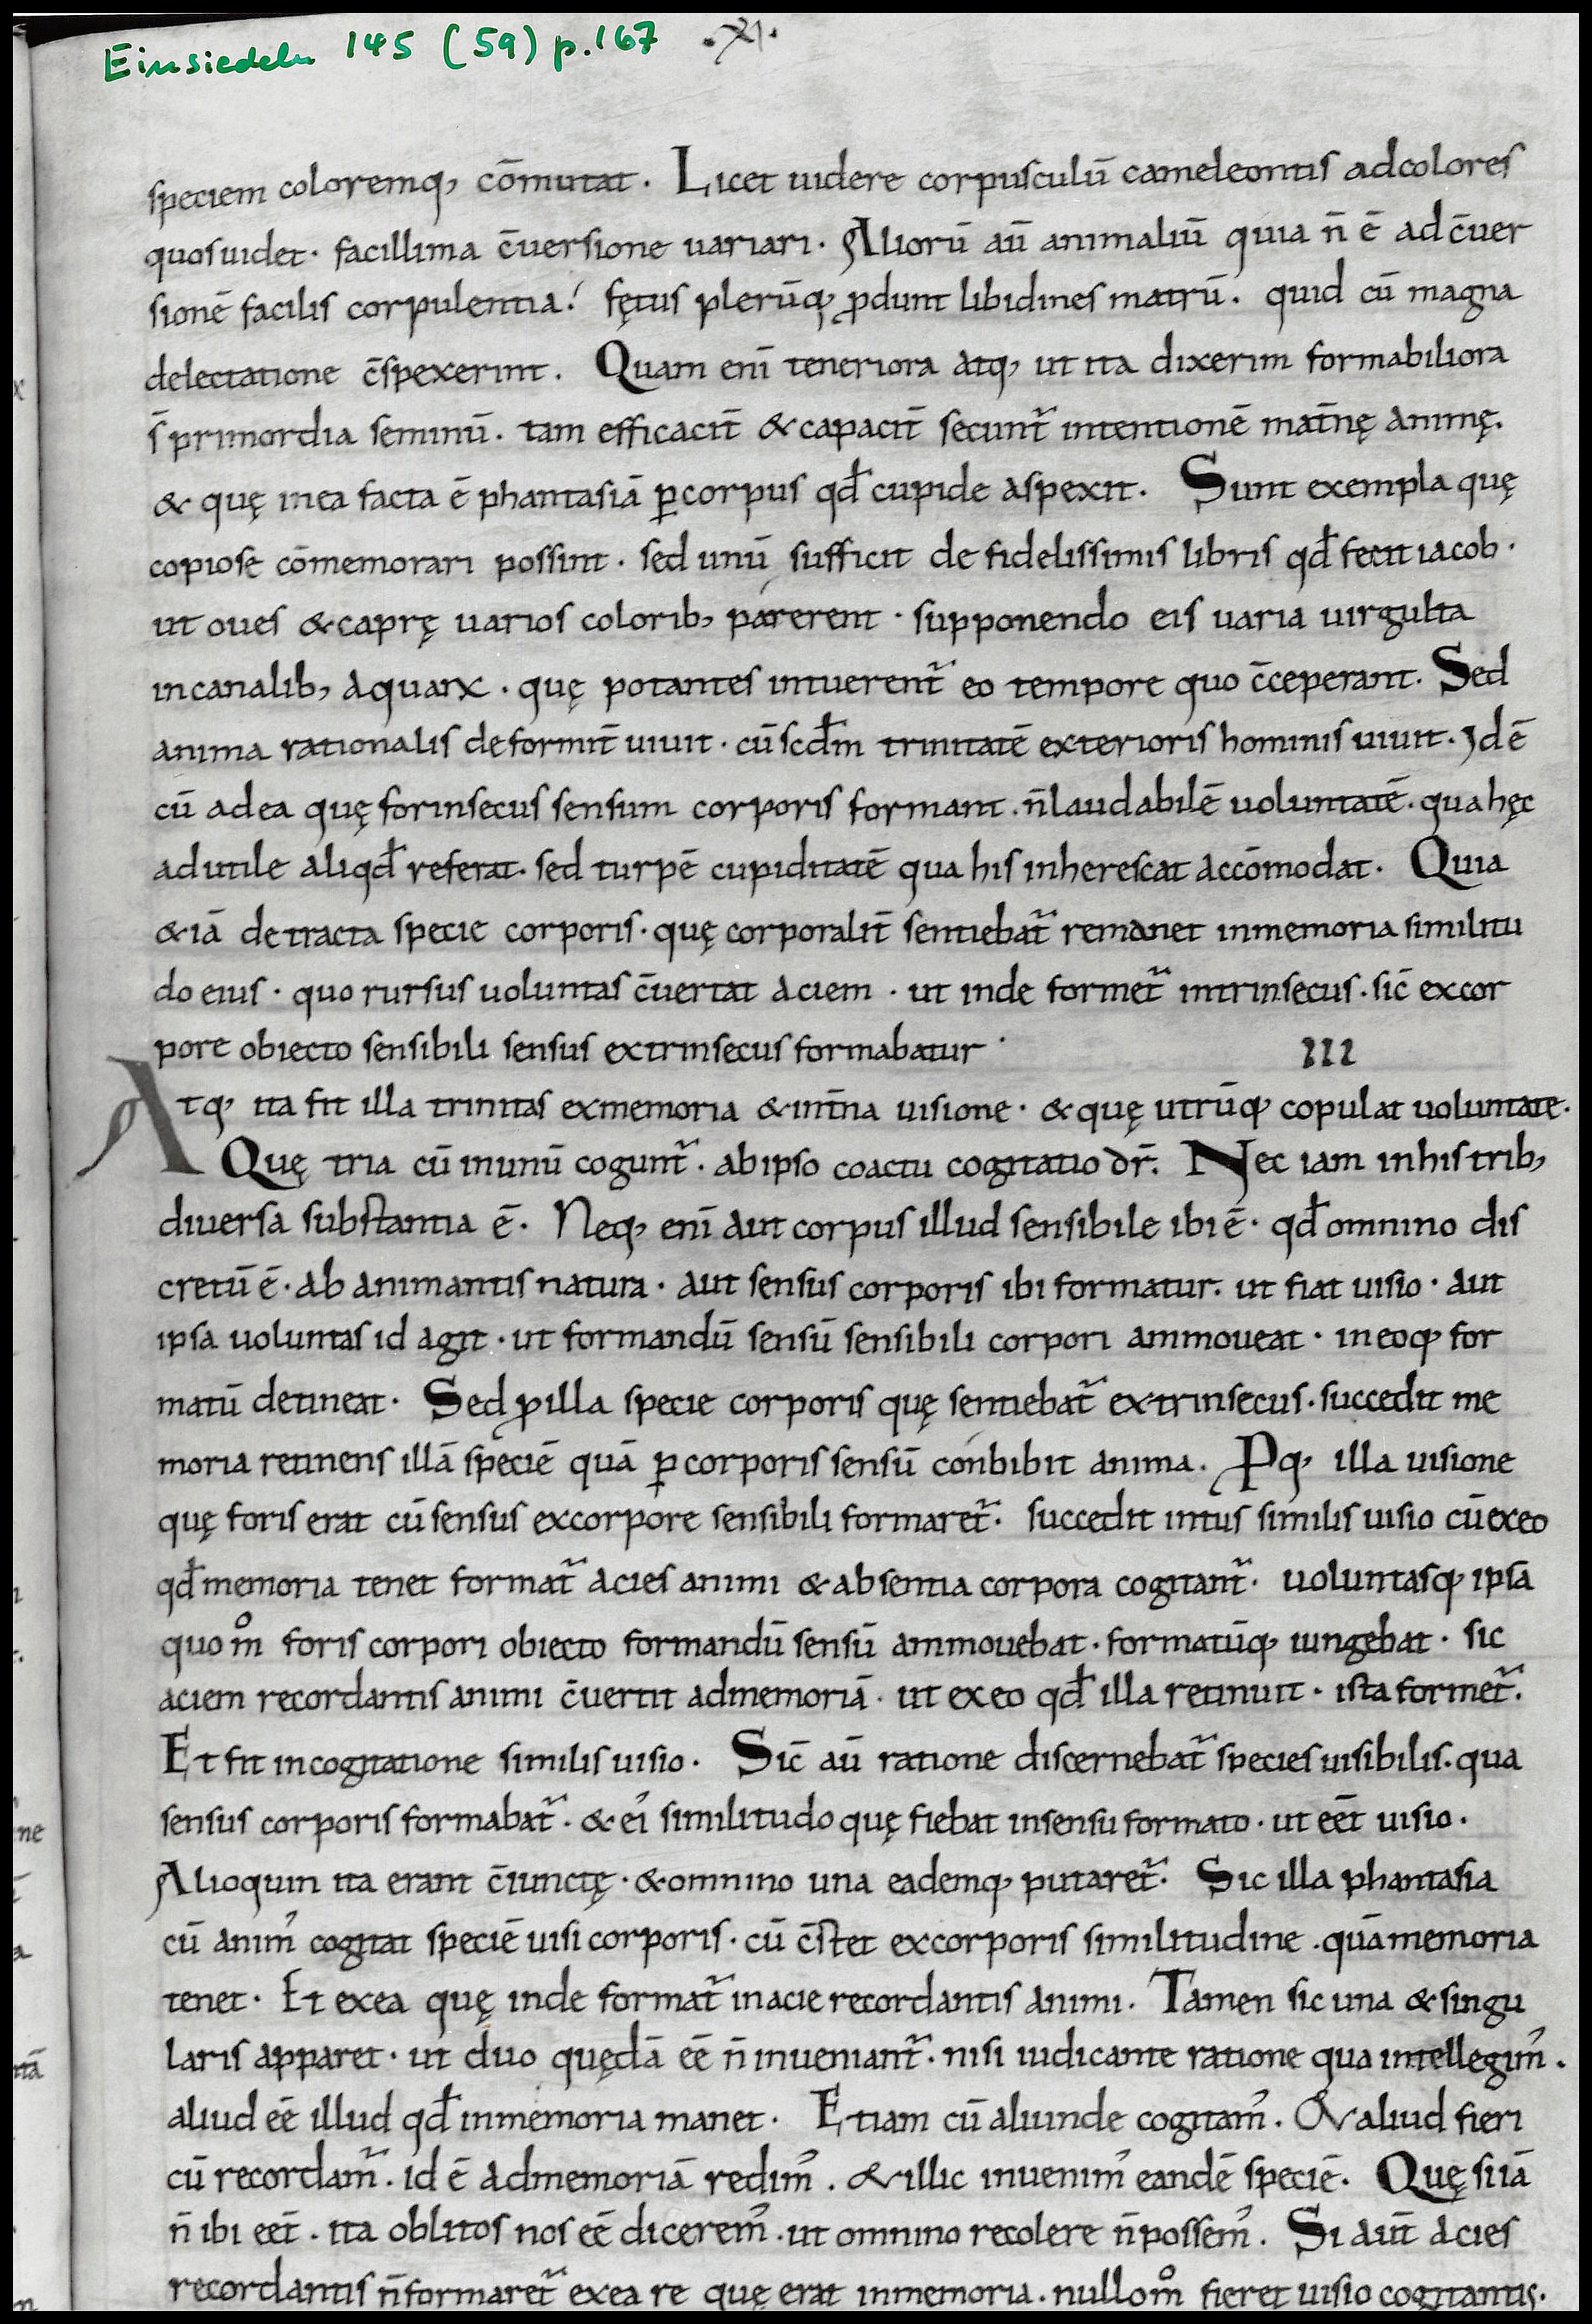 Einsiedeln 145 (59) p.167 ·XI·
speciem coloremq, cōmutat. Licet uidere corpusculū cameleontis adcolores
quosuidet· facillima c̄uersione uariari· Aliorū aū animaliū quia n̄ ē ad c̄uer
sionē facilis corpulentia! fętus plerūq, ꝓdunt libidines matrū. quid cū magna
delectatione c̄spexerint. Quam enī teneriora atq, ut ita dixerim formabiliora
s̄ primordia seminū. tam efficacit̄ &capacit̄ secunt᷑ intentionē mat̄nę animę.
& quę inea facta ē phantasiā ꝑcorpus qđ cupide aspexit. Sunt exempla quę
copiose cōmemorari possint· sed unū sufficit de fidelissimis libris qđ fecit iacob·
ut oues &caprę uarios colorib, párerent· supponendo eis uaria uirgulta
incanalib, aquaꝝ· quę potantes intuerent᷑ eo tempore quo c̄ceperant. Sed
anima rationalis deformit̄ uiuit· cū scđm trinitatē exterioris hominis uiuit. id ē
cū adea quę forinsecus sensum corporis formant. n̄laudabilē uoluntatē· qua hęc
adutile aliqđ referat· sed turpē cupiditatē qua his inherescat accōmodat. Quia
&iā detracta specie corporis· quę corporalit̄ sentiebat᷑ remanet inmemoria similitu
do eius· quo rursus uoluntas c̄uertat aciem· ut inde formet᷑ intrinsecus· sic̄ excor
pore obiecto sensibili sensus extrinsecus formabatur· III
Atq, ita fit illa trinitas exmemoria &int̄na uisione· &quę utrūq, copulat uoluntate·
Quę tria cū inunū cogunt᷑· ab ipso coactu cogitatio dr̄. Nec iam inhis trib,
diuersa substantia ē. Neq, enī aut corpus illud sensibile ibi ē· qđ omnino dis
cretū ē· ab animantis natura· aut sensus corporis ibi formatur. ut fiat uisio· aut
ipsa uoluntas id agit· ut formandū sensū sensibili corpori ammoueat· ineoq, for
matū detineat· Sed ꝓilla specie corporis quę sentiebat᷑ extrinsecus· succedit me
moria retinens illā speciē quā ꝑcorporis sensū conbibit anima. Ꝓq, illa uisione
quę foris erat cū sensus excorpore sensibili formaret᷑· succedit intus similis uisio cū exeo
qđmemoria tenet format᷑ acies animi &absentia corpora cogitant᷑· uoluntasq, ipsa
quo m̊ foris corpori obiecto formandū sensū ammouebat· formatūq, iungebat· sic
aciem recordantis animi c̄uertit admemoriā· ut exeo qđ illa retinuit· ista formet᷑.
Et fit incogitatione similis uisio. Sic̄ aū ratione discernebat᷑ species uisibilis. qua
sensus corporis formabat᷑· &eiʼ similitudo quę fiebat insensu formato· ut eēt uisio·
Alioquin ita erant c̄iunctę· &omnino una eademq, putaret᷑· Sic illa phantasia
cū animʼ cogitat speciē uisi corporis· cū c̄stet excorporis similitudine· quāmemoria
tenet· Et exea quę inde format᷑ inacie recordantis animi. Tamen sic una &singu
laris apparet· ut duo quędā eē n̄ inueniant᷑· nisi iudicante ratione qua intellegimʼ.
aliud eē illud qđ inmemoria manet· Etiam cū aliunde cogitamʼ. &aliud fieri
cū recordam᷑· id ē admemoriā redimʼ. &illic inuenimʼ eandē speciē. Quę si iā
n̄ ibi eēt· ita oblitos nos eē diceremʼ· ut omnino recolere n̄possemʼ. Si aūt acies
recordantis n̄formaret᷑ exea re quę erat inmemoria. nullom̊ fieret uisio cogitantis·